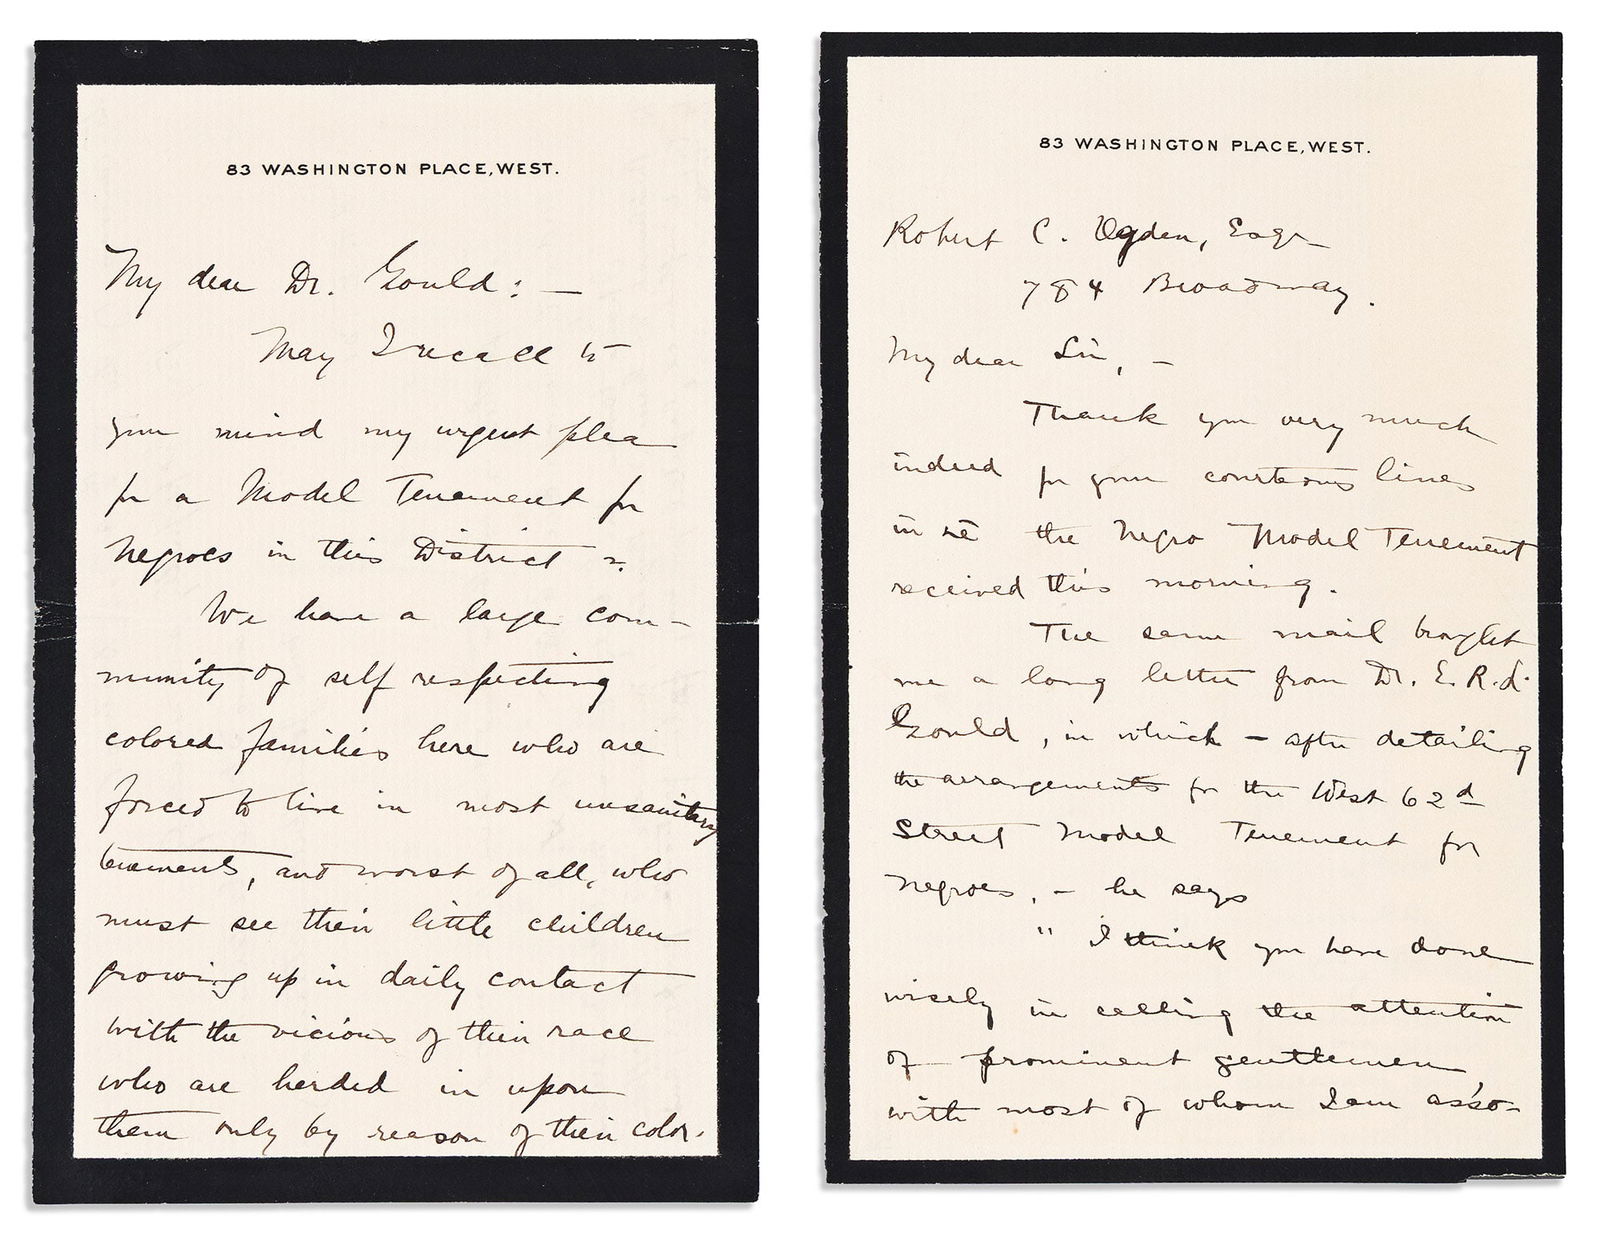 83 WASHINGTON PLACE, WEST.
My dear Dr. Gould: —
May I recall to
your mind my urgent plea
for a Model Tenement for
Negroes in this District ?
We have a large com-
munity of self respecting
colored families here who are
forced to live in most unsanitary
tenements, and worst of all, who
must see their little children
growing up in daily contact
with the vicious of their race
who are herded in upon
them only by reason of their color.
83 WASHINGTON PLACE, WEST.
Robert C. Ogden, Esqr
784 Broadway.
My dear Sir, —
Thank you very much
indeed for your courteous lines
in re the Negro Model Tenement
received this morning.
The same mail brought
me a long letter from Dr. E. R. L.
Gould, in which — after detailing
the arrangements for the West 62d
Street Model Tenement for
Negroes, — he says
" I think you have done
wisely in calling the attention
of prominent gentlemen
with most of whom I am asso-